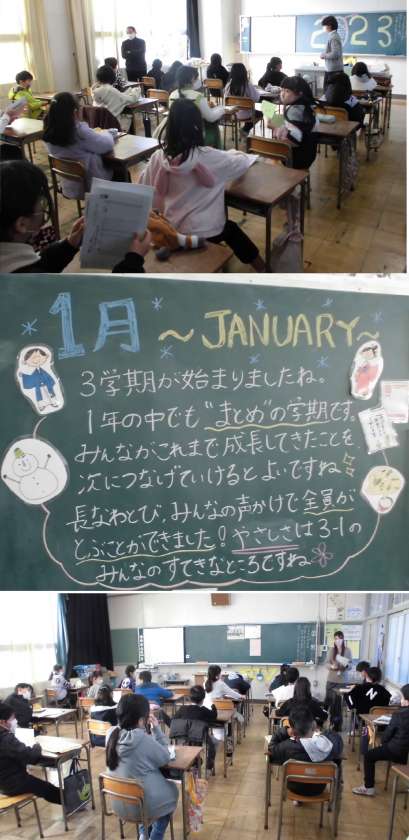 2023
1月 ~JANUARY~
3学期が始まりましたね。
1年の中でも“まとめ”の学期です。
みんながこれまで成長してきたことを、
次につなげていけるとよいですね
長なわとび、みんなの声かけで全員が
とぶことができました!やさしさは3-1の
みんなのすてきなところですね
N